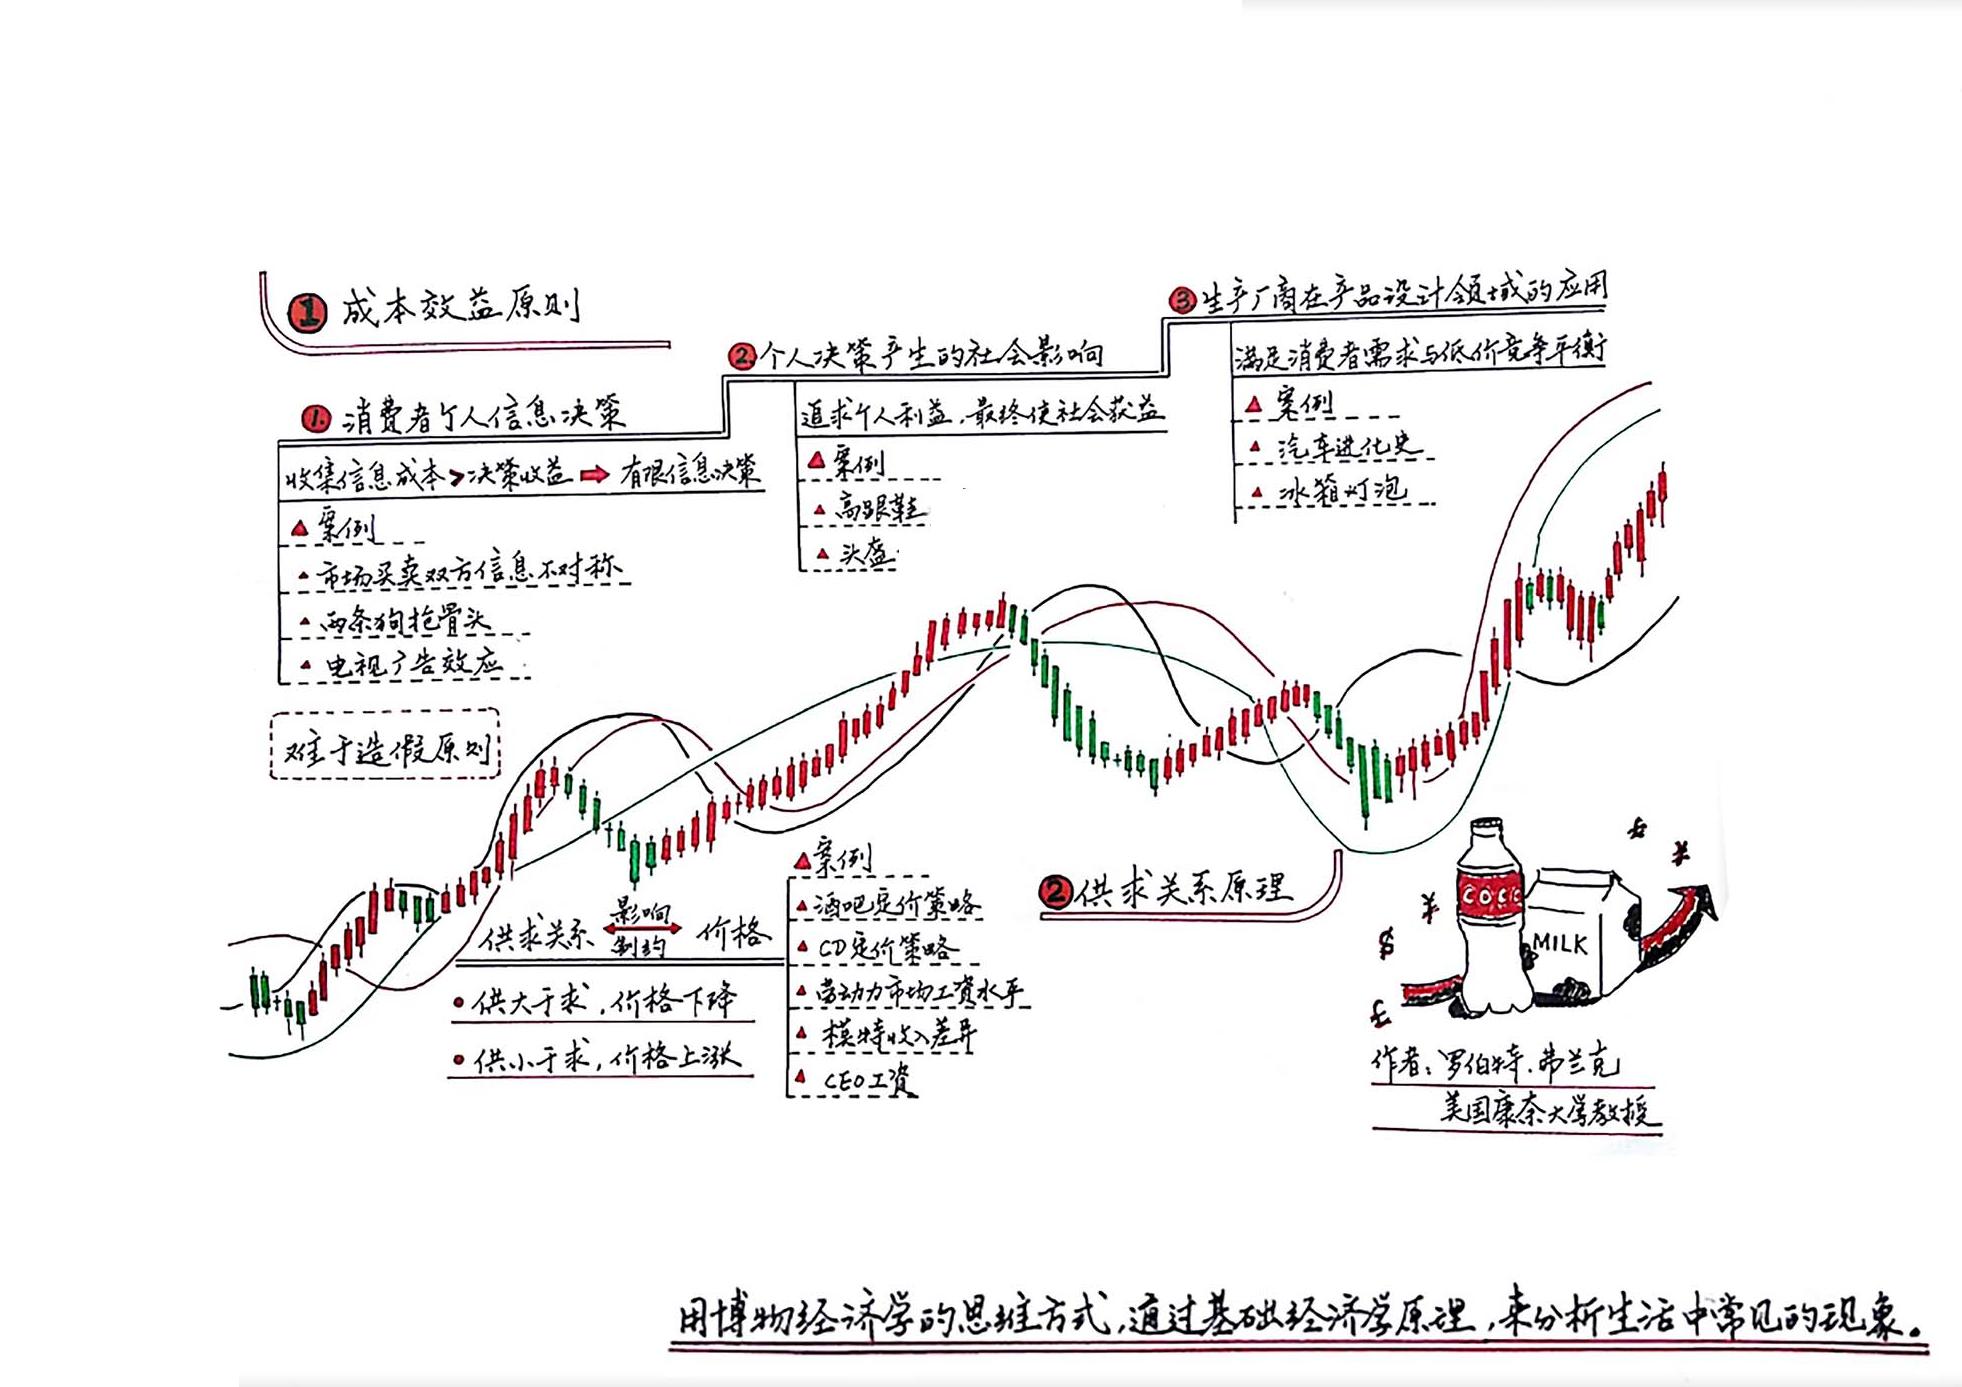 1 成本效益原则
1. 消费者个人信息决策
收集信息成本>决策收益 有限信息决策
案例
市场买卖双方信息不对称
两条狗抢骨头
电视广告效应
难于造假原则
2. 个人决策产生的社会影响
追求个人利益，最终使社会获益
案例
高跟鞋
头盔
3. 生产厂商在产品设计领域的应用
满足消费者需求与低价竞争平衡
案例
汽车进化史
冰箱灯泡
2 供求关系原理
供求关系 影响 制约 价格
供大于求，价格下降
供小于求，价格上涨
案例
酒吧定价策略
CD定价策略
劳动力市场工资水平
模特收入差异
CEO工资
COCC
MILK
$
¥
¥
作者：罗伯特.弗兰克
美国康奈大学教授
用博物经济学的思维方式，通过基础经济学原理，来分析生活中常见的现象。